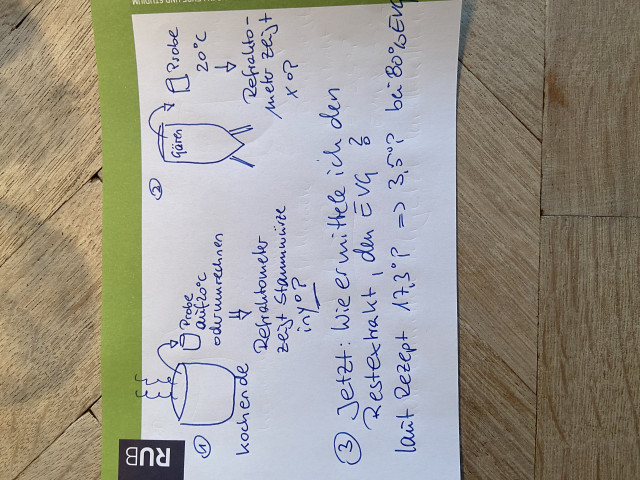 RUB
①
kochende
Probe
auf 20°C
oder umrechnen
Refraktometer
zeigt Stammwürze
in y°P
②
Gären
Probe
20°C
Refrakto-
meter zeigt
x°P
③ Jetzt: Wie ermittele ich den
Restextrakt, den EVG?
laut Rezept 17,3°P => 3,5°P bei 80% EVG